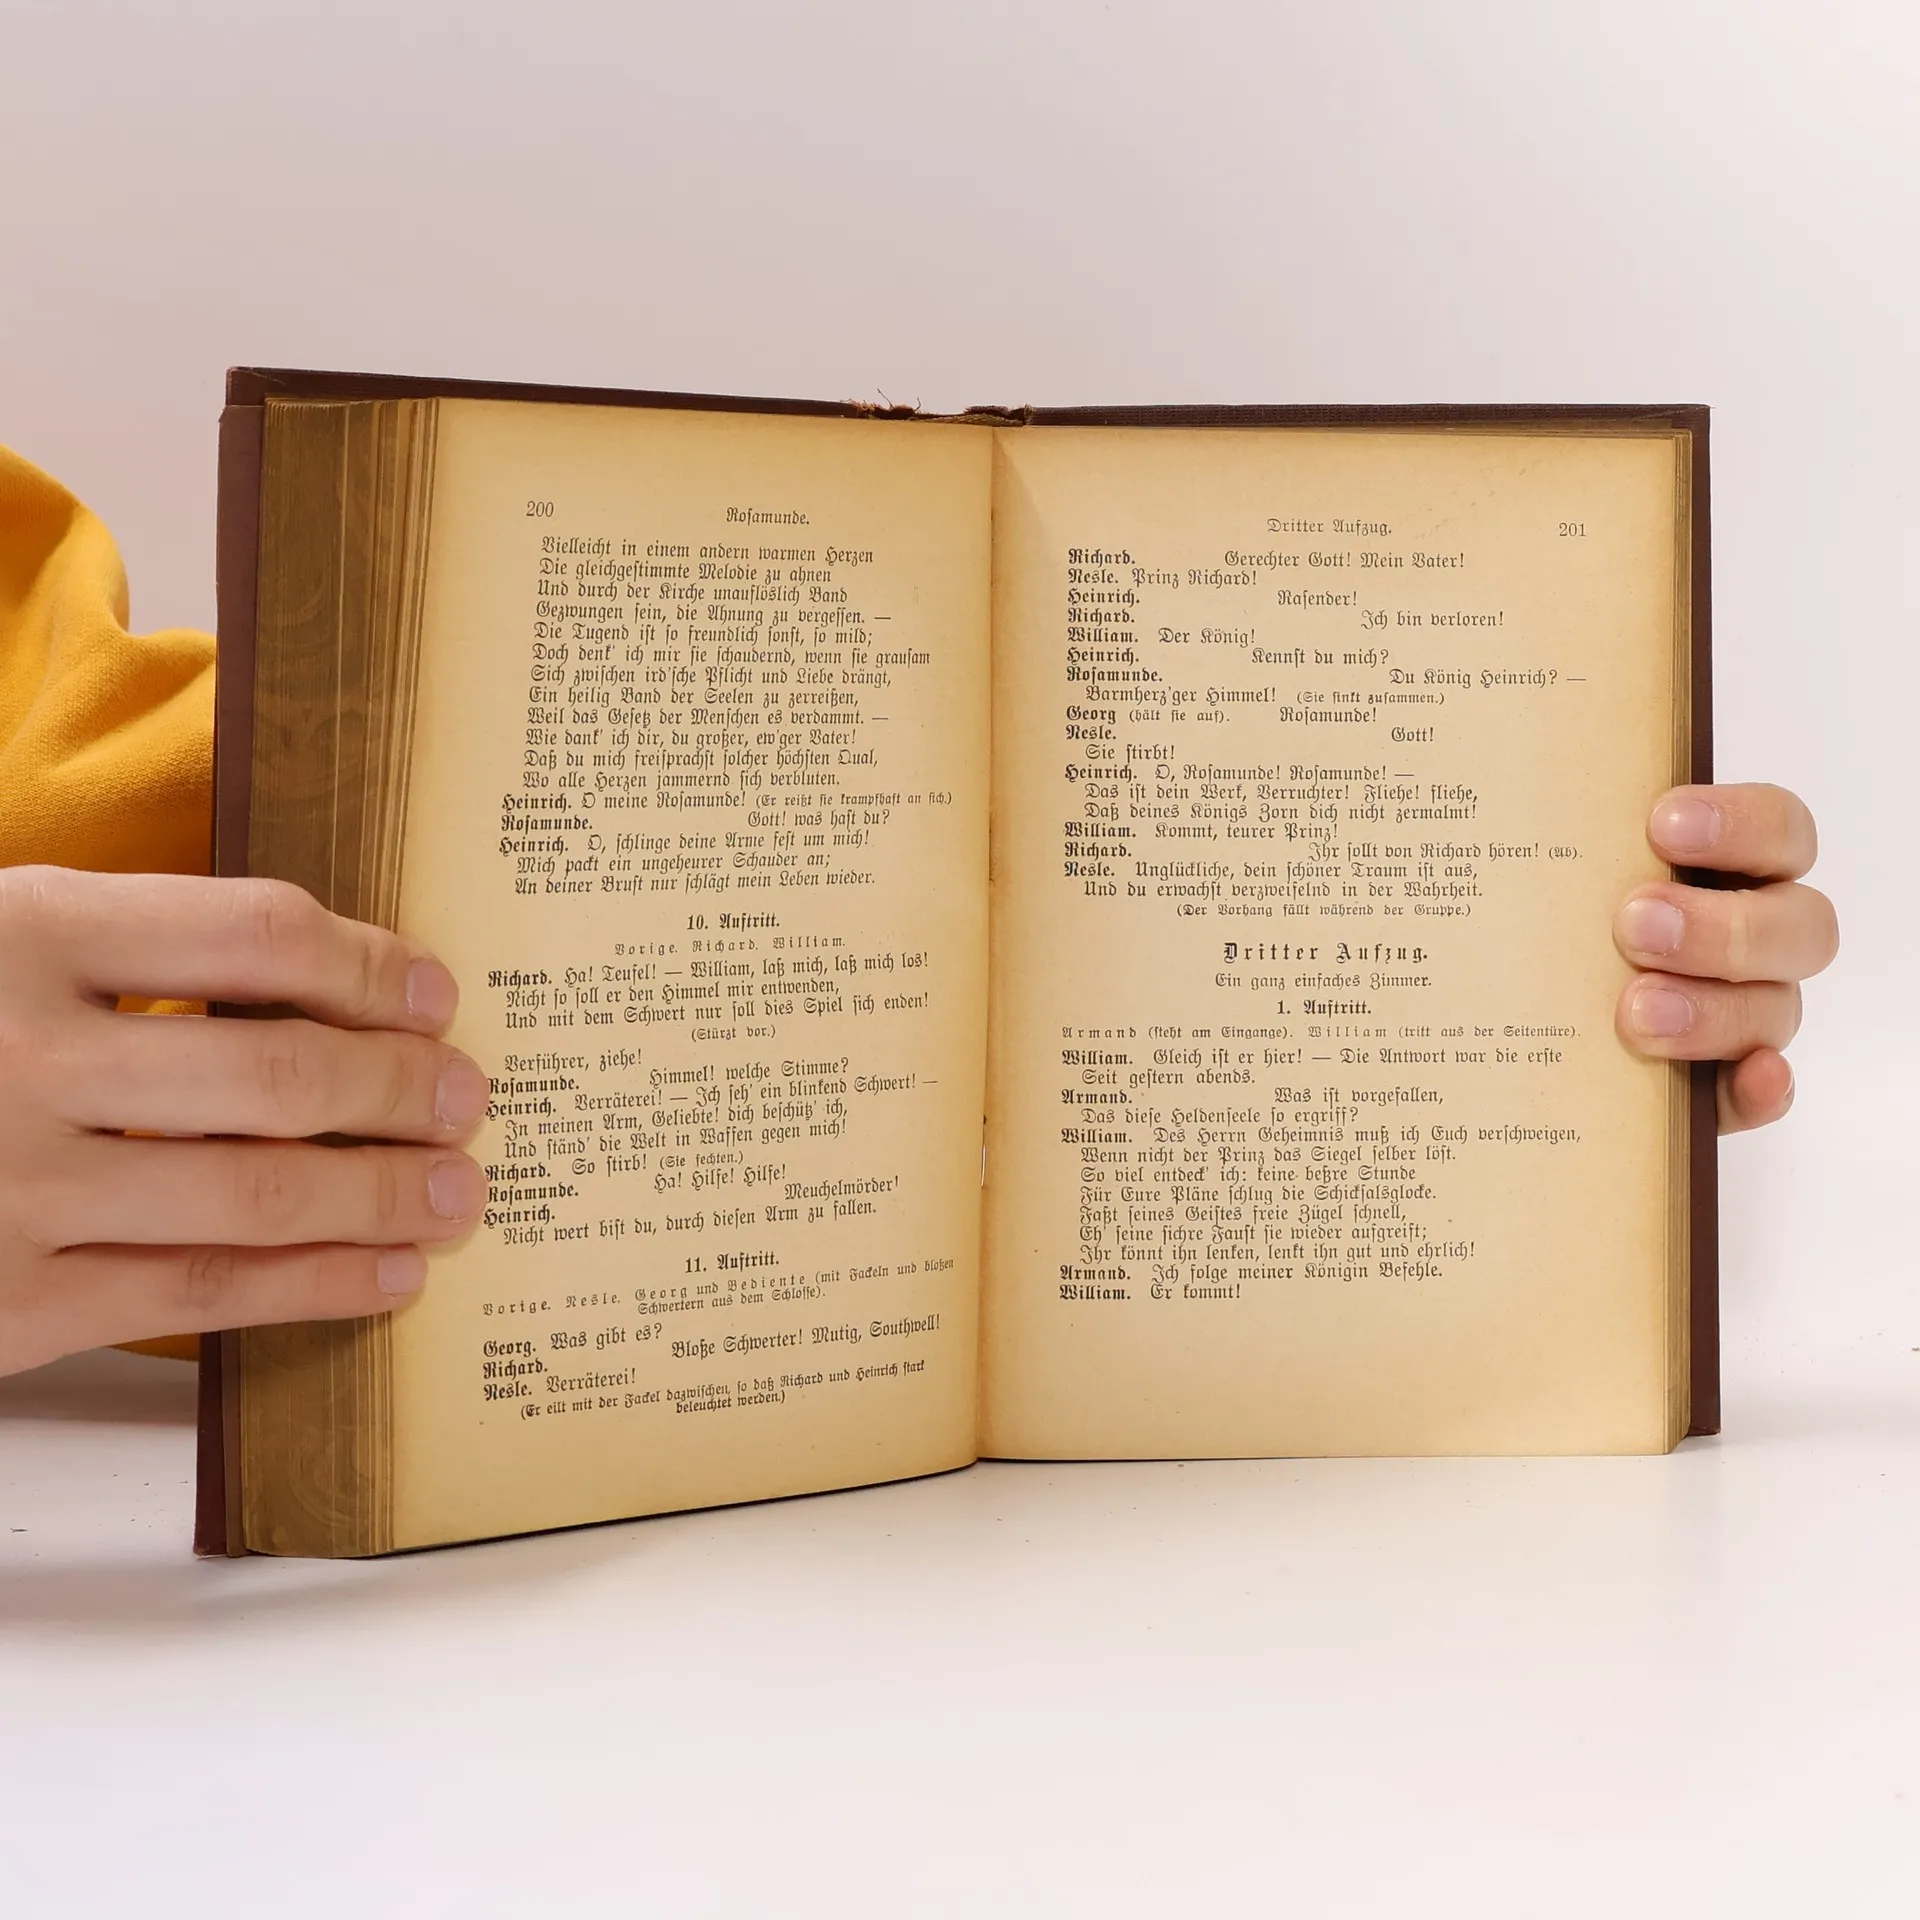 200
Rosamunde.
Vielleicht in einem andern warmen Herzen
Die gleichgestimmte Melodie zu ahnen
Und durch der Kirche unauflöslich Band
Gezwungen sein, die Ahnung zu vergessen. —
Die Tugend ist so freundlich sonst, so mild;
Doch denk' ich mir sie schaudernd, wenn sie grausam
Sich zwischen ird'sche Pflicht und Liebe drängt,
Ein heilig Band der Seelen zu zerreißen,
Weil das Gesetz der Menschen es verdammt. —
Wie dank' ich dir, du großer, ew'ger Vater!
Daß du mich freisprachst solcher höchsten Qual,
Wo alle Herzen jammernd sich verbluten.
Heinrich. O meine Rosamunde! (Er reißt sie krampfhaft an sich.)
Rosamunde. Gott! was hast du?
Heinrich. O, schlinge deine Arme fest um mich!
Mich packt ein ungeheurer Schauder an;
An deiner Brust nur schlägt mein Leben wieder.
10. Auftritt.
Vorige. Richard. William.
Richard. Ha! Teufel! — William, laß mich, laß mich los!
Nicht so soll er den Himmel mir entwenden,
Und mit dem Schwert nur soll dies Spiel sich enden!
(Stürzt vor.)
Verführer, ziehe!
Rosamunde. Himmel! welche Stimme?
Heinrich. Verräterei! — Ich seh' ein blinkend Schwert! —
In meinen Arm, Geliebte! dich beschütz' ich,
Und ständ' die Welt in Waffen gegen mich!
Richard. So stirb! (Sie fechten.)
Rosamunde. Ha! Hilfe! Hilfe!
Heinrich. Meuchelmörder!
Nicht wert bist du, durch diesen Arm zu fallen.
11. Auftritt.
Vorige. Nesle. Georg und Bediente (mit Fackeln und bloßen
Schwertern aus dem Schlosse).
Georg. Was gibt es?
Richard. Bloße Schwerter! Mutig, Southwell!
Nesle. Verräterei!
(Er eilt mit der Fackel dazwischen, so daß Richard und Heinrich stark
beleuchtet werden.)
Dritter Aufzug.
201
Richard. Gerechter Gott! Mein Vater!
Nesle. Prinz Richard!
Heinrich. Rasender!
Richard. Ich bin verloren!
William. Der König!
Heinrich. Kennst du mich?
Rosamunde. Du König Heinrich? —
Barmherz'ger Himmel! (Sie sinkt zusammen.)
Georg (hält sie auf). Rosamunde!
Nesle. Gott!
Sie stirbt!
Heinrich. O, Rosamunde! Rosamunde! —
Das ist dein Werk, Verruchter! Fliehe! fliehe,
Daß deines Königs Zorn dich nicht zermalmt!
William. Kommt, teurer Prinz!
Richard. Ihr sollt von Richard hören! (Ab).
Nesle. Unglückliche, dein schöner Traum ist aus,
Und du erwachst verzweifelnd in der Wahrheit.
(Der Vorhang fällt während der Gruppe.)
Dritter Aufzug.
Ein ganz einfaches Zimmer.
1. Auftritt.
Armand (steht am Eingange). William (tritt aus der Seitentüre).
William. Gleich ist er hier! — Die Antwort war die erste
Seit gestern abends.
Armand. Was ist vorgefallen,
Das diese Heldenseele so ergriff?
William. Des Herrn Geheimnis muß ich Euch verschweigen,
Wenn nicht der Prinz das Siegel selber löst.
So viel entdeck' ich: keine beßre Stunde
Für Eure Pläne schlug die Schicksalsglocke.
Faßt seines Geistes freie Zügel schnell,
Eh' seine sichre Faust sie wieder aufgreift;
Ihr könnt ihn lenken, lenkt ihn gut und ehrlich!
Armand. Ich folge meiner Königin Befehle.
William. Er kommt!